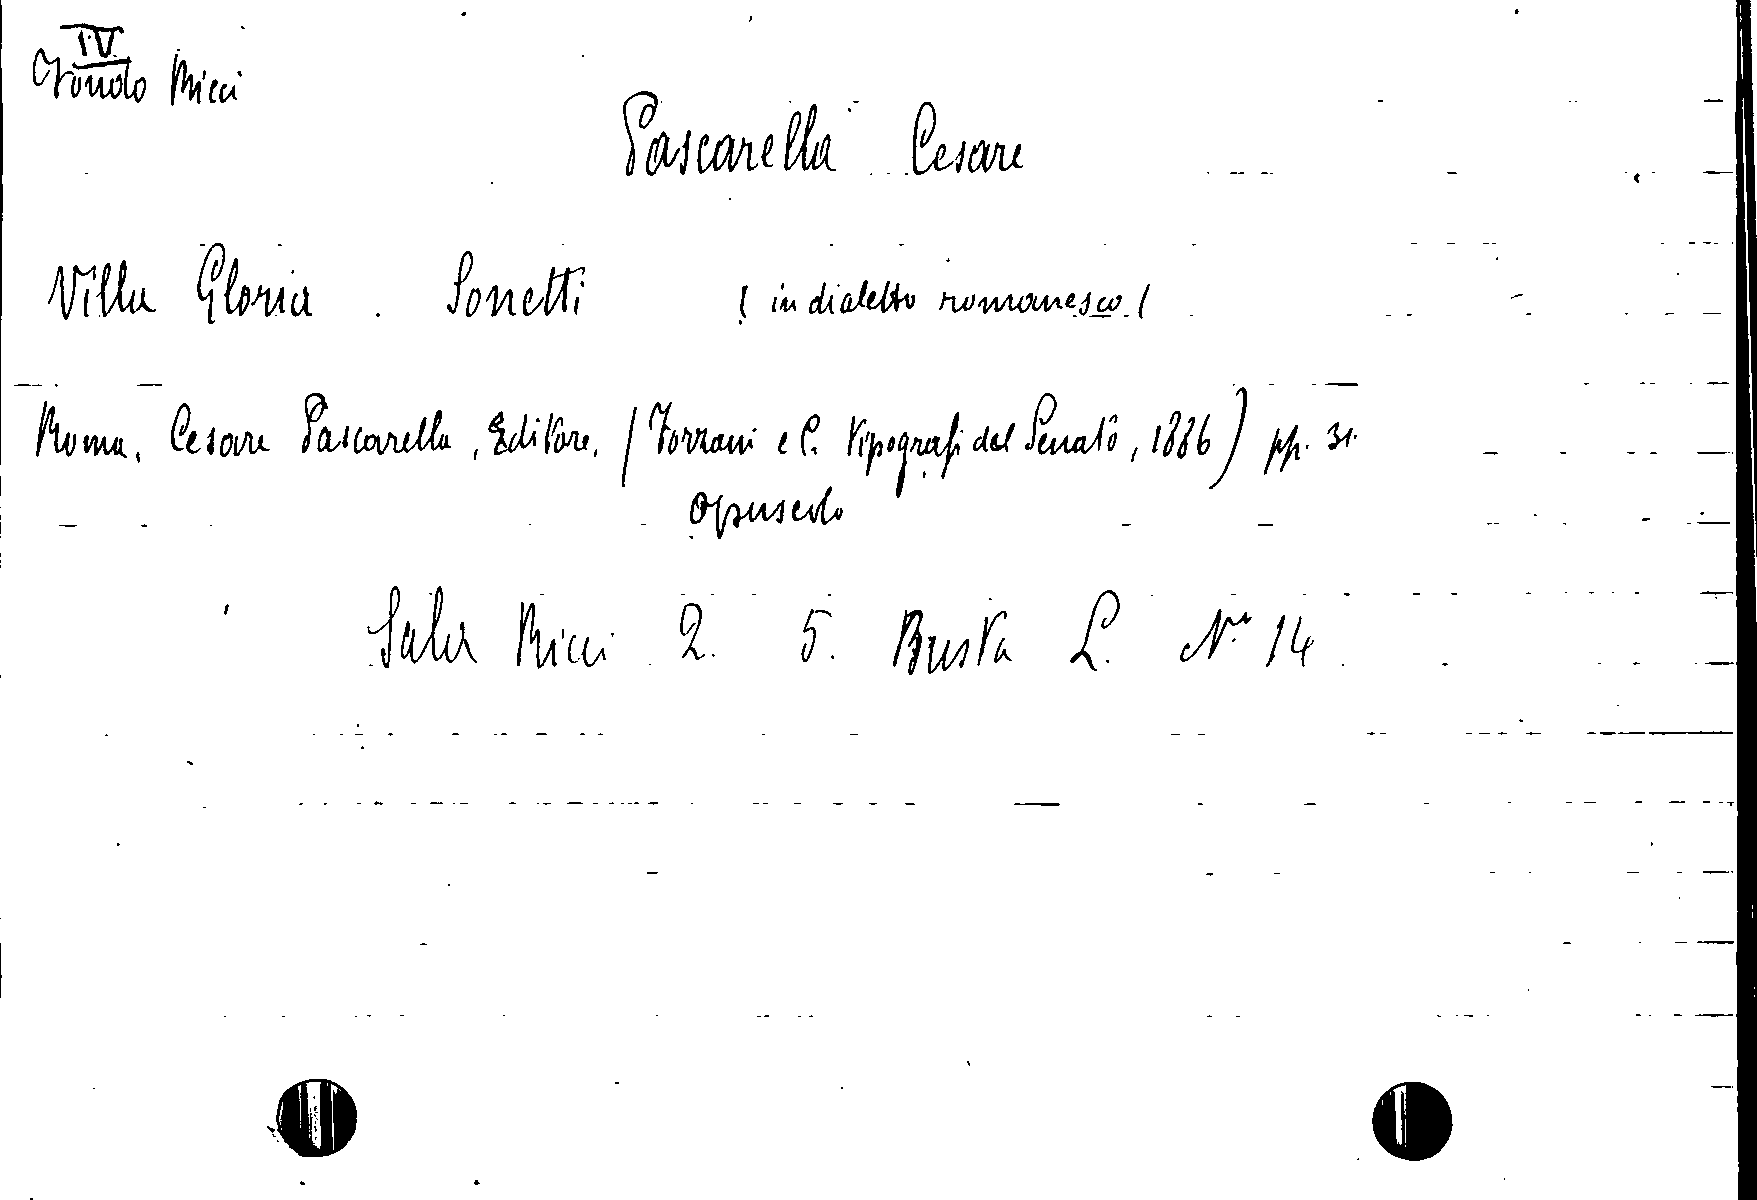 IV
Fondo Ricci
Pascarella Cesare
Villa Gloria. Sonetti ( in dialetto romanesco (
Roma, Cesare Pascarella, Editore, ( Forzani e C. Tipografi del Senato, 1886) pp. 31.
Opuscolo
Sala Ricci 2. 5. Busta L. N° 14